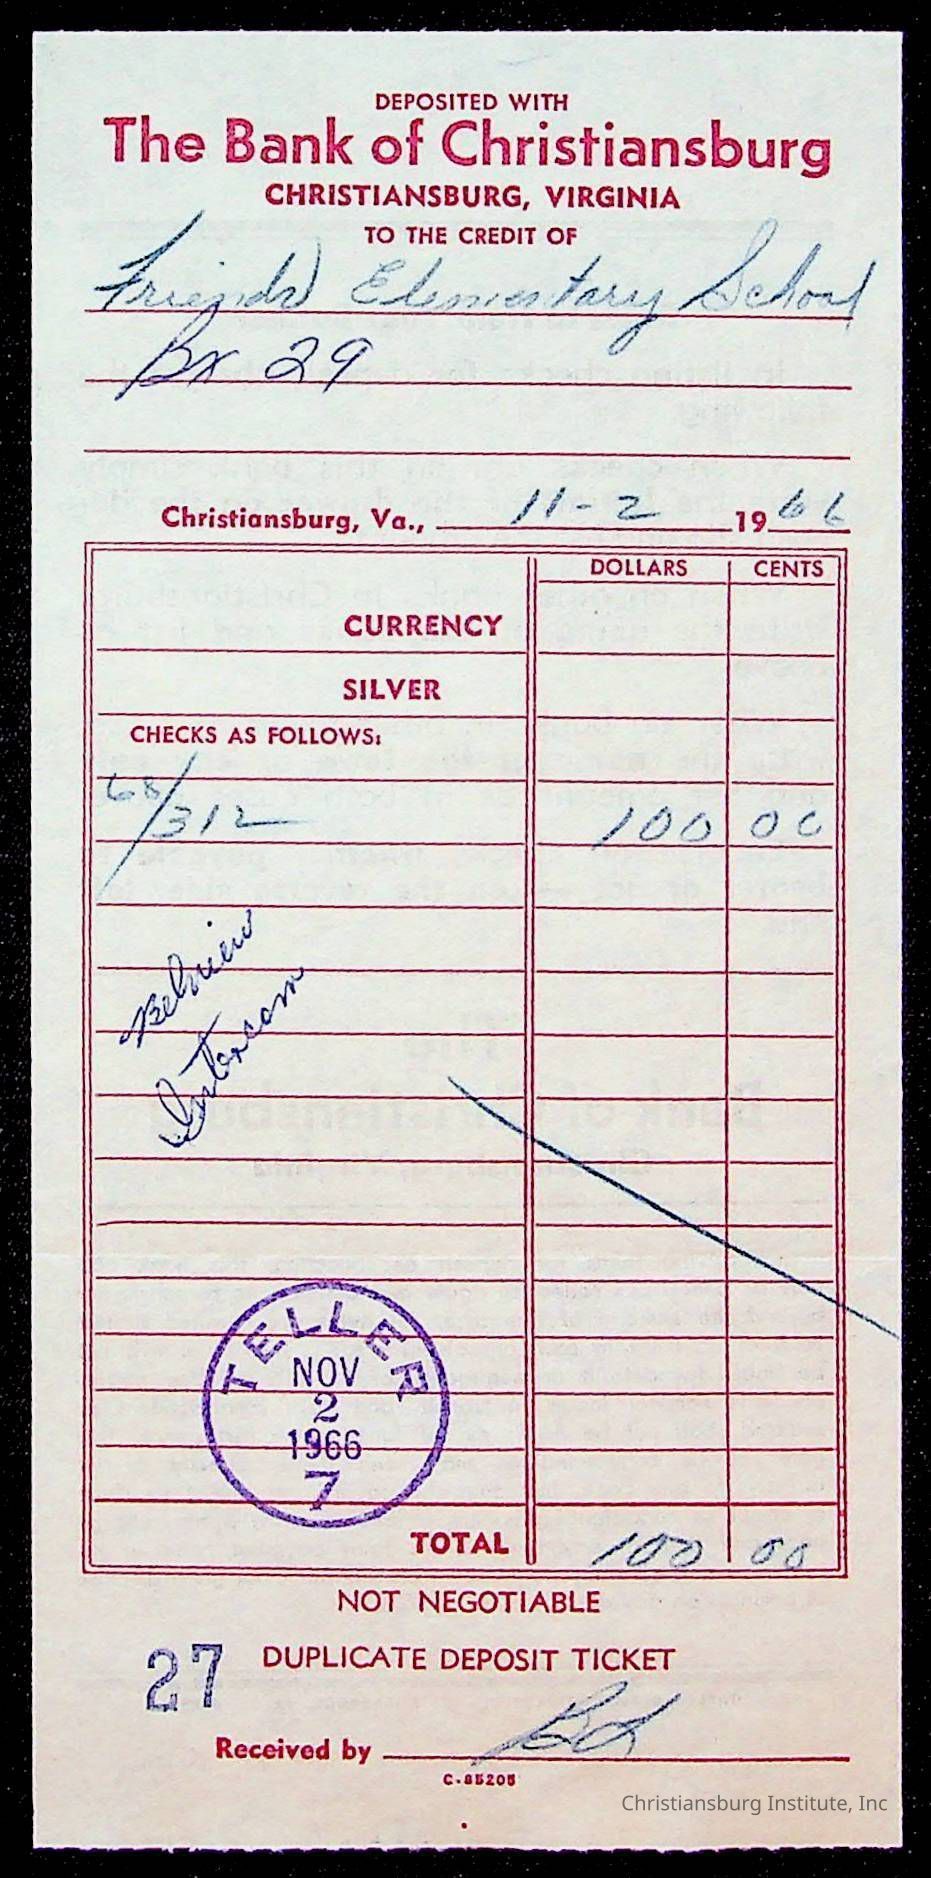 DEPOSITED WITH
The Bank of Christiansburg
CHRISTIANSBURG, VIRGINIA
TO THE CREDIT OF
Friends Elementary School
Bx 29
Christiansburg, Va., 11-2 1966
DOLLARS CENTS
CURRENCY
SILVER
CHECKS AS FOLLOWS:
68/312 100 00
Belview
Intercom
TELLER
NOV
2
1966
7
TOTAL 100 00
NOT NEGOTIABLE
27 DUPLICATE DEPOSIT TICKET
Received by
C-85205
Christiansburg Institute, Inc